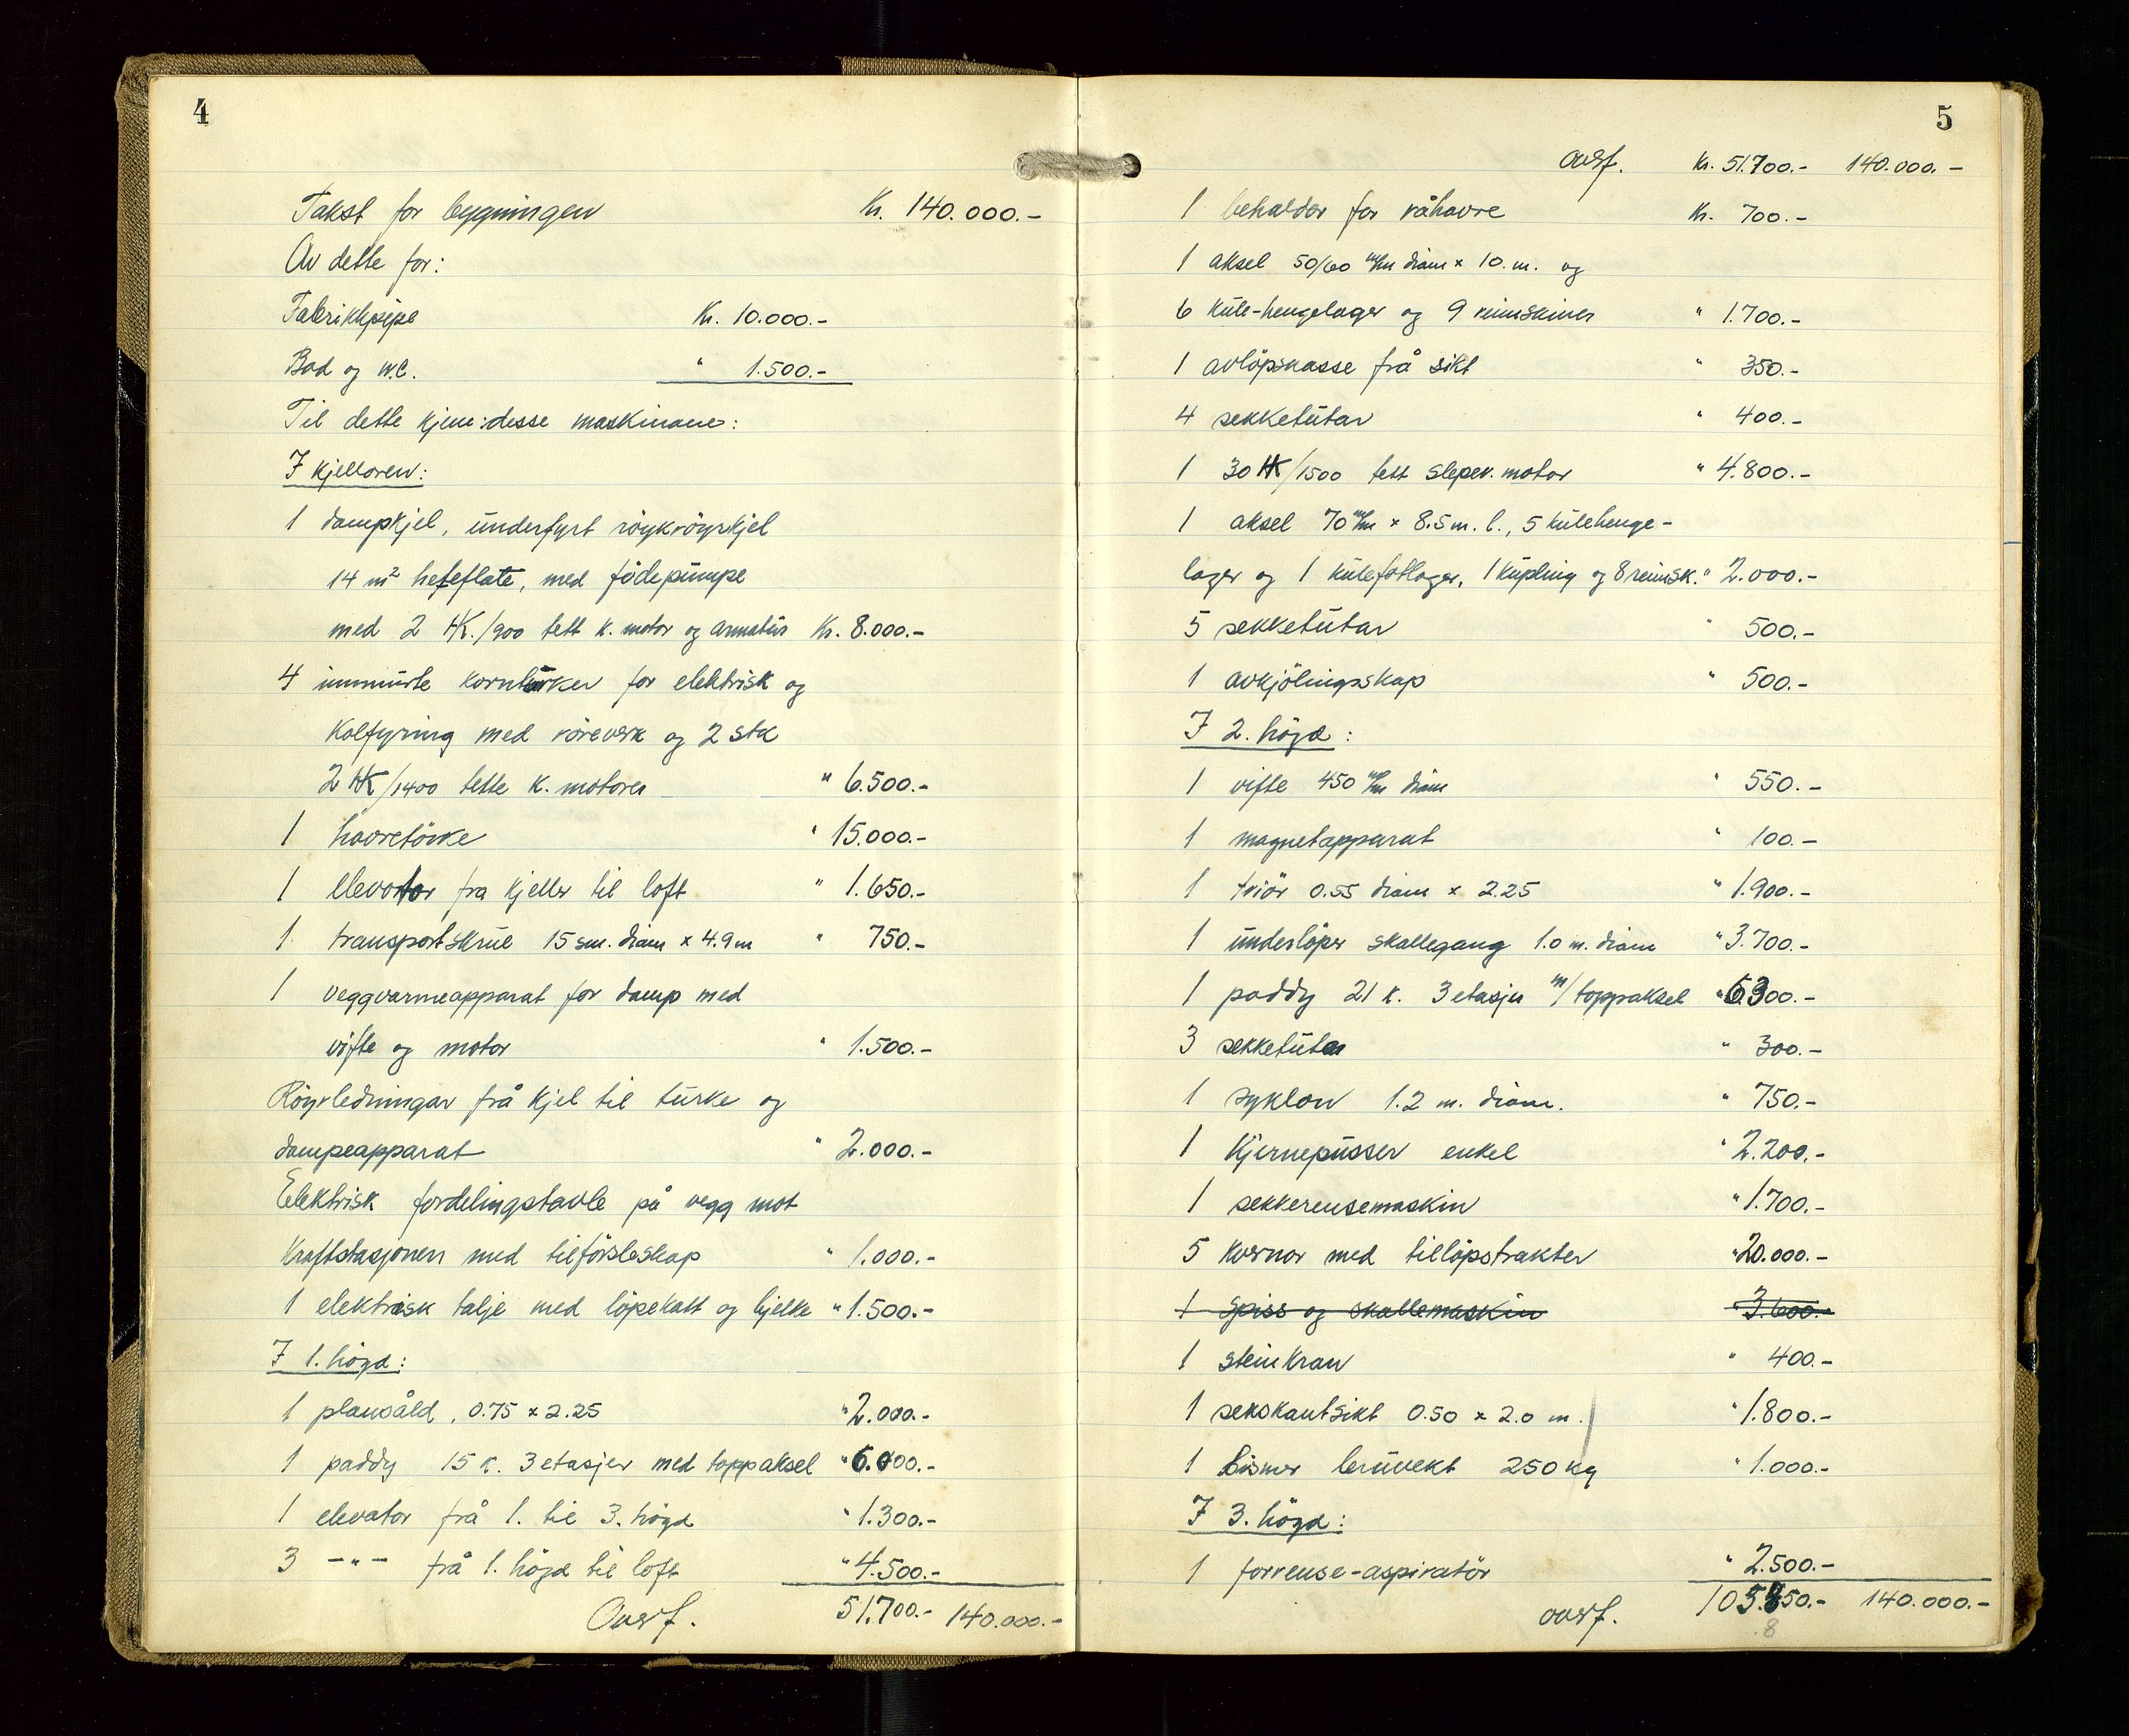 4
Takst for bygningen Kr. 140.000.-
Av dette for:
Fabrikkpipe Kr. 10.000.-
Bad og W.C. " 1.500.-
Til dette kjem: desse maskinane:
I kjellaren:
1 dampkjel, underfyrt röykröyrkjel
14 m² heteflate, med födepumpe
med 2 HK./900 tett k. motor og armatur Kr. 8.000.-
4 innmurte kornturker for elektrisk og
Kolfyring med röreverk og 2 stk
2 HK/1400 tette k. motorer " 6.500.-
1 havretörke " 15.000.-
1 elevator fra kjeller til loft " 1.650.-
1 transportskrue 15 sm. diam x 4.9 m " 750.-
1 veggvarmeapparat for damp med
vifte og motor " 1.500.-
Röyrledningar frå kjel til turke og
dampeapparat " 2.000.-
Elektrisk fordelingstavle på vegg mot
Kraftstasjonen med tilförsleskap " 1.000.-
1 elektrisk talje med löpekatt og bjelke " 1.500.-
I 1. högd:
1 plansåld, 0.75 x 2.25 " 2.000.-
1 paddy 15 k. 3 etasjer med toppaksel " 6.000.-
1 elevator frå 1. til 3. högd " 1.300.-
3 -"- frå 1. högd til loft " 4.500.-
Overf. 51.700.- 140.000.-
5
overf. Kr. 51.700.- 140.000.-
1 behalder for råhavre Kr. 700.-
1 aksel 50/60 m/m diam x 10. m. og
6 kule-hengelager og 9 reimskiver " 1.700.-
1 avlöpskasse frå sikt " 350.-
4 sekketutar " 400.-
1 30 HK/1500 tett sleper. motor " 4.800.-
1 aksel 70 m/m x 8.5 m. l., 5 kulehenge-
lager og 1 kulefotlager, 1 kupling og 8 reimsk. " 2.000.-
5 sekketutar " 500.-
1 avkjölingsskap " 500.-
I 2. högd:
1 vifte 450 m/m diam " 550.-
1 magnetapparat " 100.-
1 triör 0.55 diam x 2.25 " 1.900.-
1 underlöper skallegang 1.0 m. diam " 3.700.-
1 paddy 21 k. 3 etasjer m/toppaksel " 6300.-
3 sekketutar " 300.-
1 syklon 1.2 m. diam. " 750.-
1 Kjernepusser enkel " 2.200.-
1 sekkerensemaskin " 1.700.-
5 kvernar med tillöpstrakter " 20.000.-
1 Spiss og skallemaskin " 3.600.-
1 steinkran " 400.-
1 sekskantsikt 0.50 x 2.0 m. " 1.800.-
1 Bismer bruvekt 250 kg " 1.000.-
I 3. högd:
1 forrense-aspiratör " 2.500.-
overf. 105.850.- 140.000.-
8